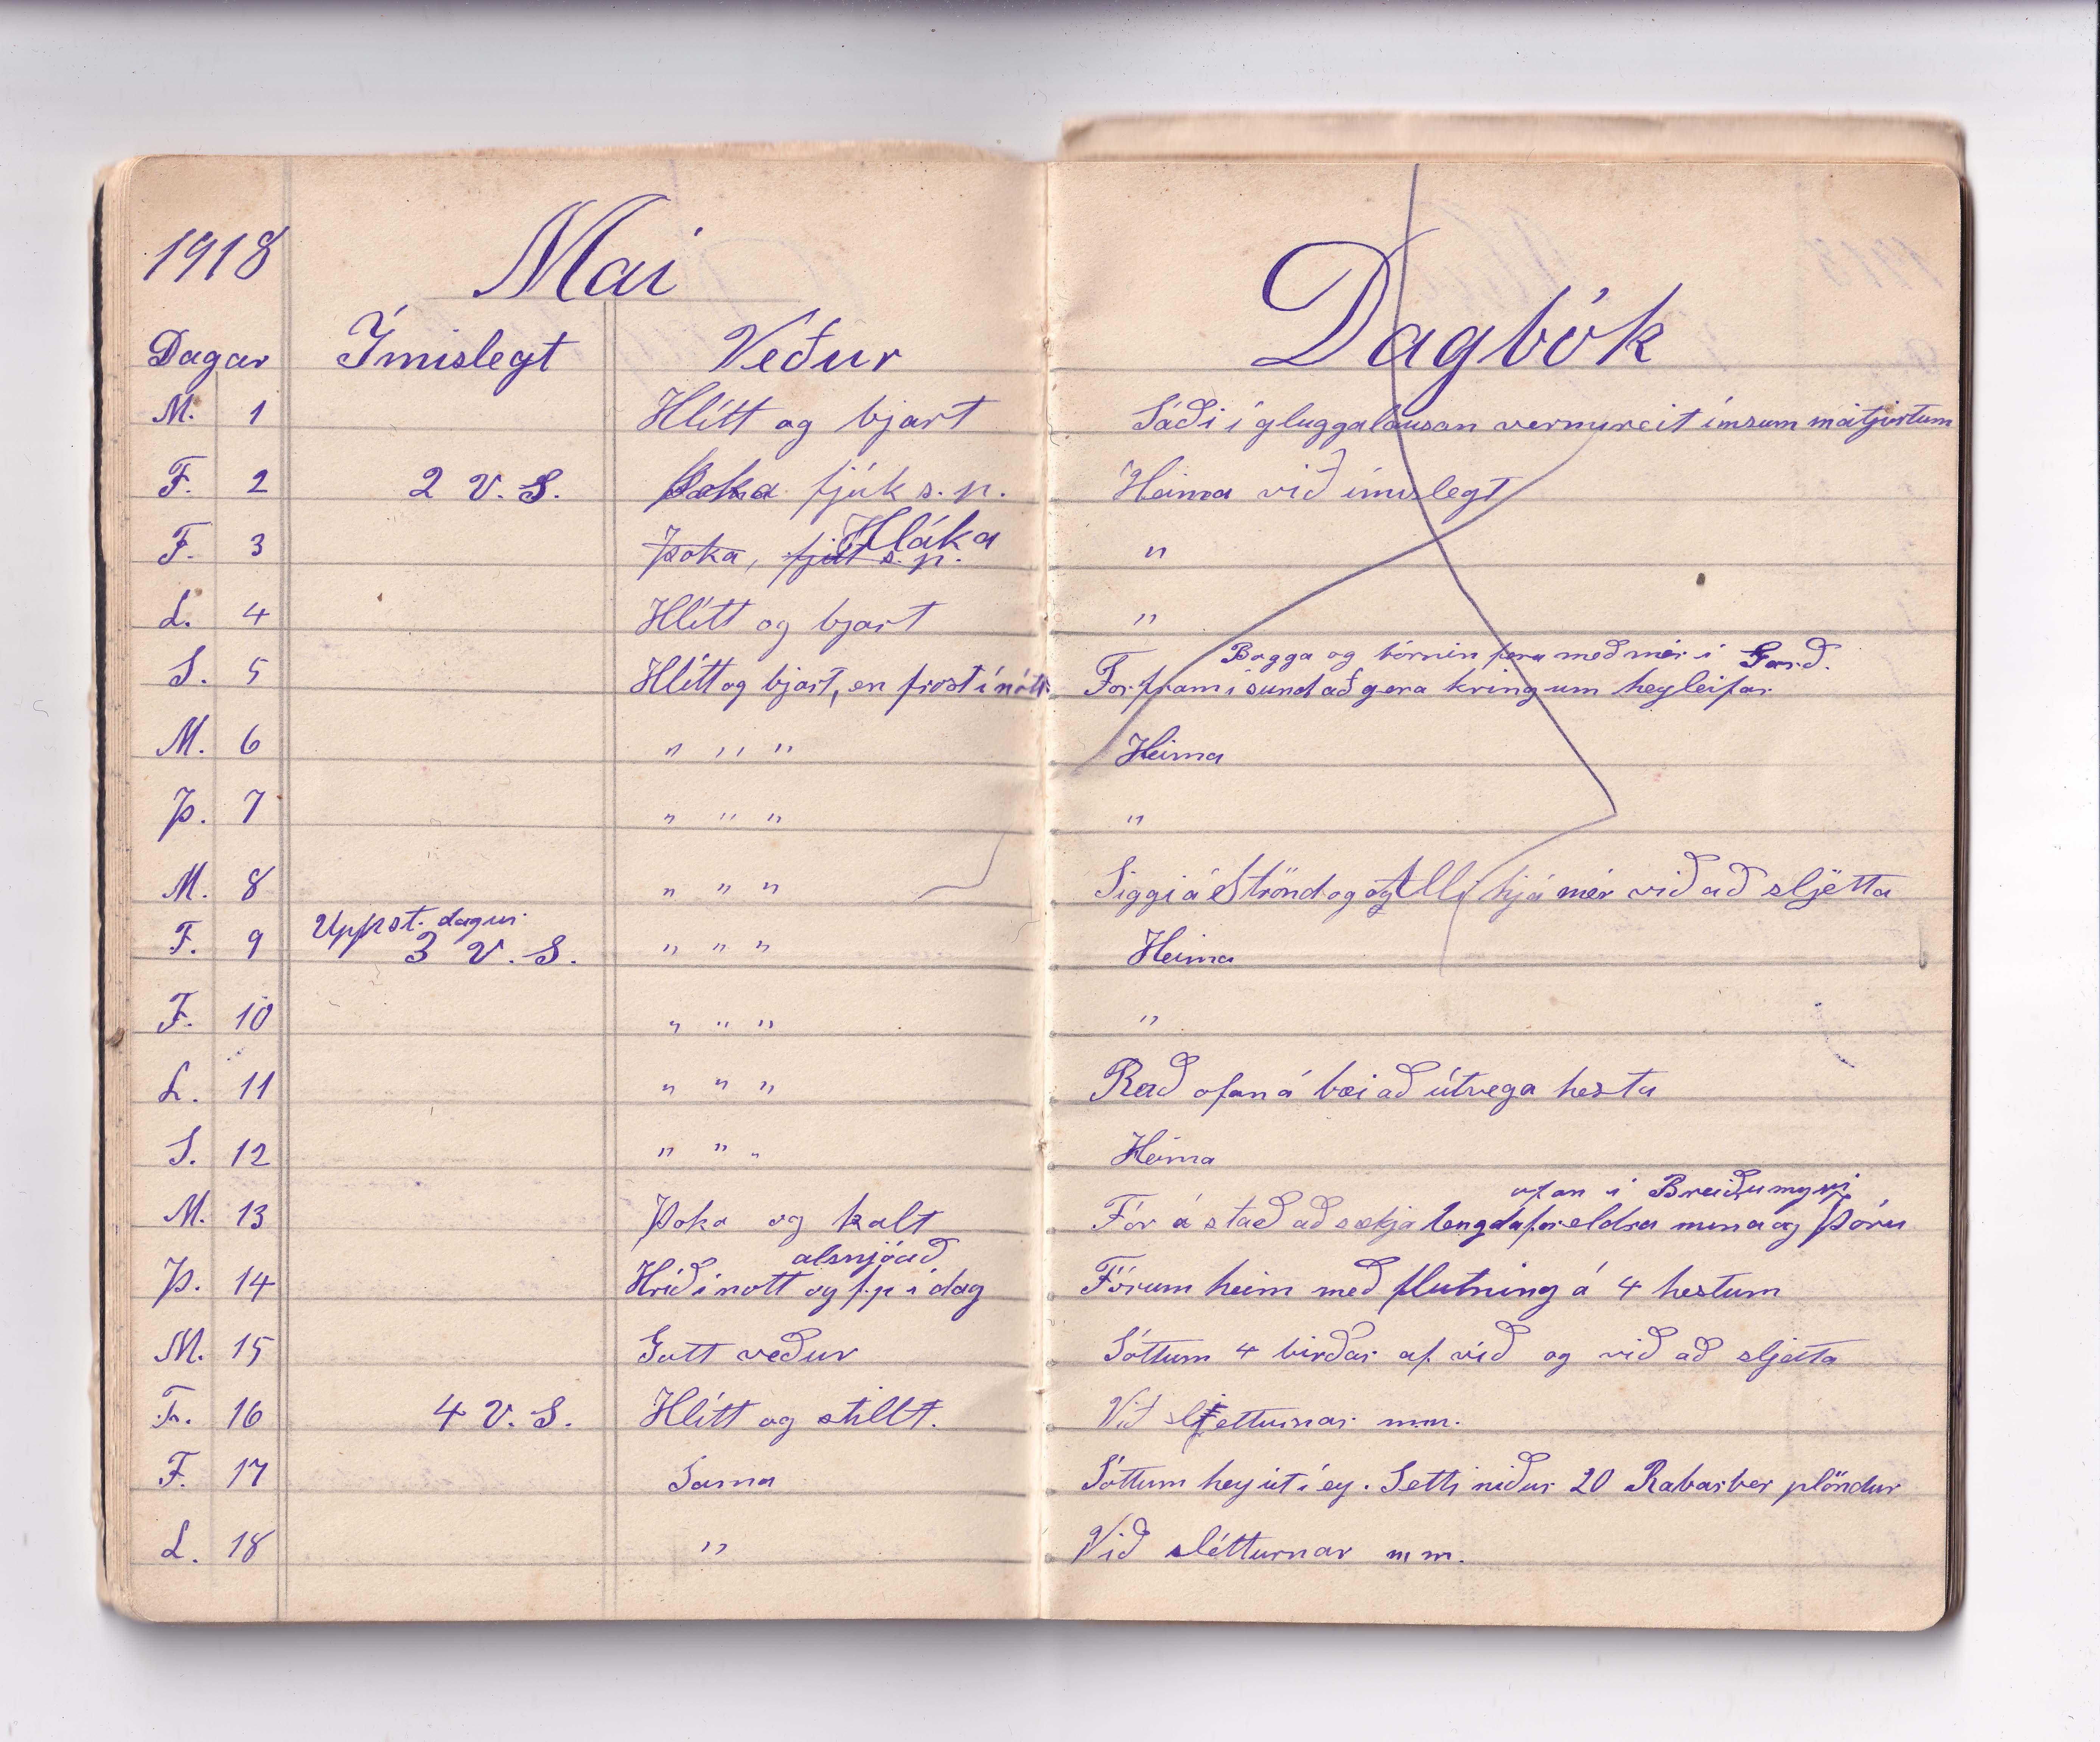 1918 Mai
Dagbók
Dagar Ímislegt Veður
M. 1 Hlítt og bjart Sáði í gluggalausan vermireit ímsum matjurtum
F. 2 2 V. S. Þoka fjúk s. p. Heima við ímislegt
Hláka
F. 3 Þoka, fjúk s. p. "
L. 4 Hlítt og bjart "
Bogga og börnin fóru með mér í Garð.
S. 5 Hlítt og bjart, en frost í nótt Fór fram í sund að gera kringum heyleifar
M. 6 " " " Heima
Þ. 7 " " " "
M. 8 " " " Siggi á Strönd og Alli hjá mér við að sljétta
Uppst. dagur
F. 9 3 V. S. " " " Heima
F. 10 " " " "
L. 11 " " " Reið ofan á bæi að útvega hesta
S. 12 " " " Heima
ofan í Breiðumýri
M. 13 Þoka og kalt Fór á stað að sækja tengdaforeldra mina og Þóru
alsnjóað
Þ. 14 Hríð í nott og f. p í dag Fórum heim með flutning á 4 hestum
M. 15 Gott veður Sóttum 4 birðar af við og við að sljetta
F. 16 4 V. S. Hlítt og stillt. Við sljetturnar m.m.
F. 17 Sama Sóttum hey út í ey. Setti niður 20 Rabarber plöndur
L. 18 " Við slétturnar m m.